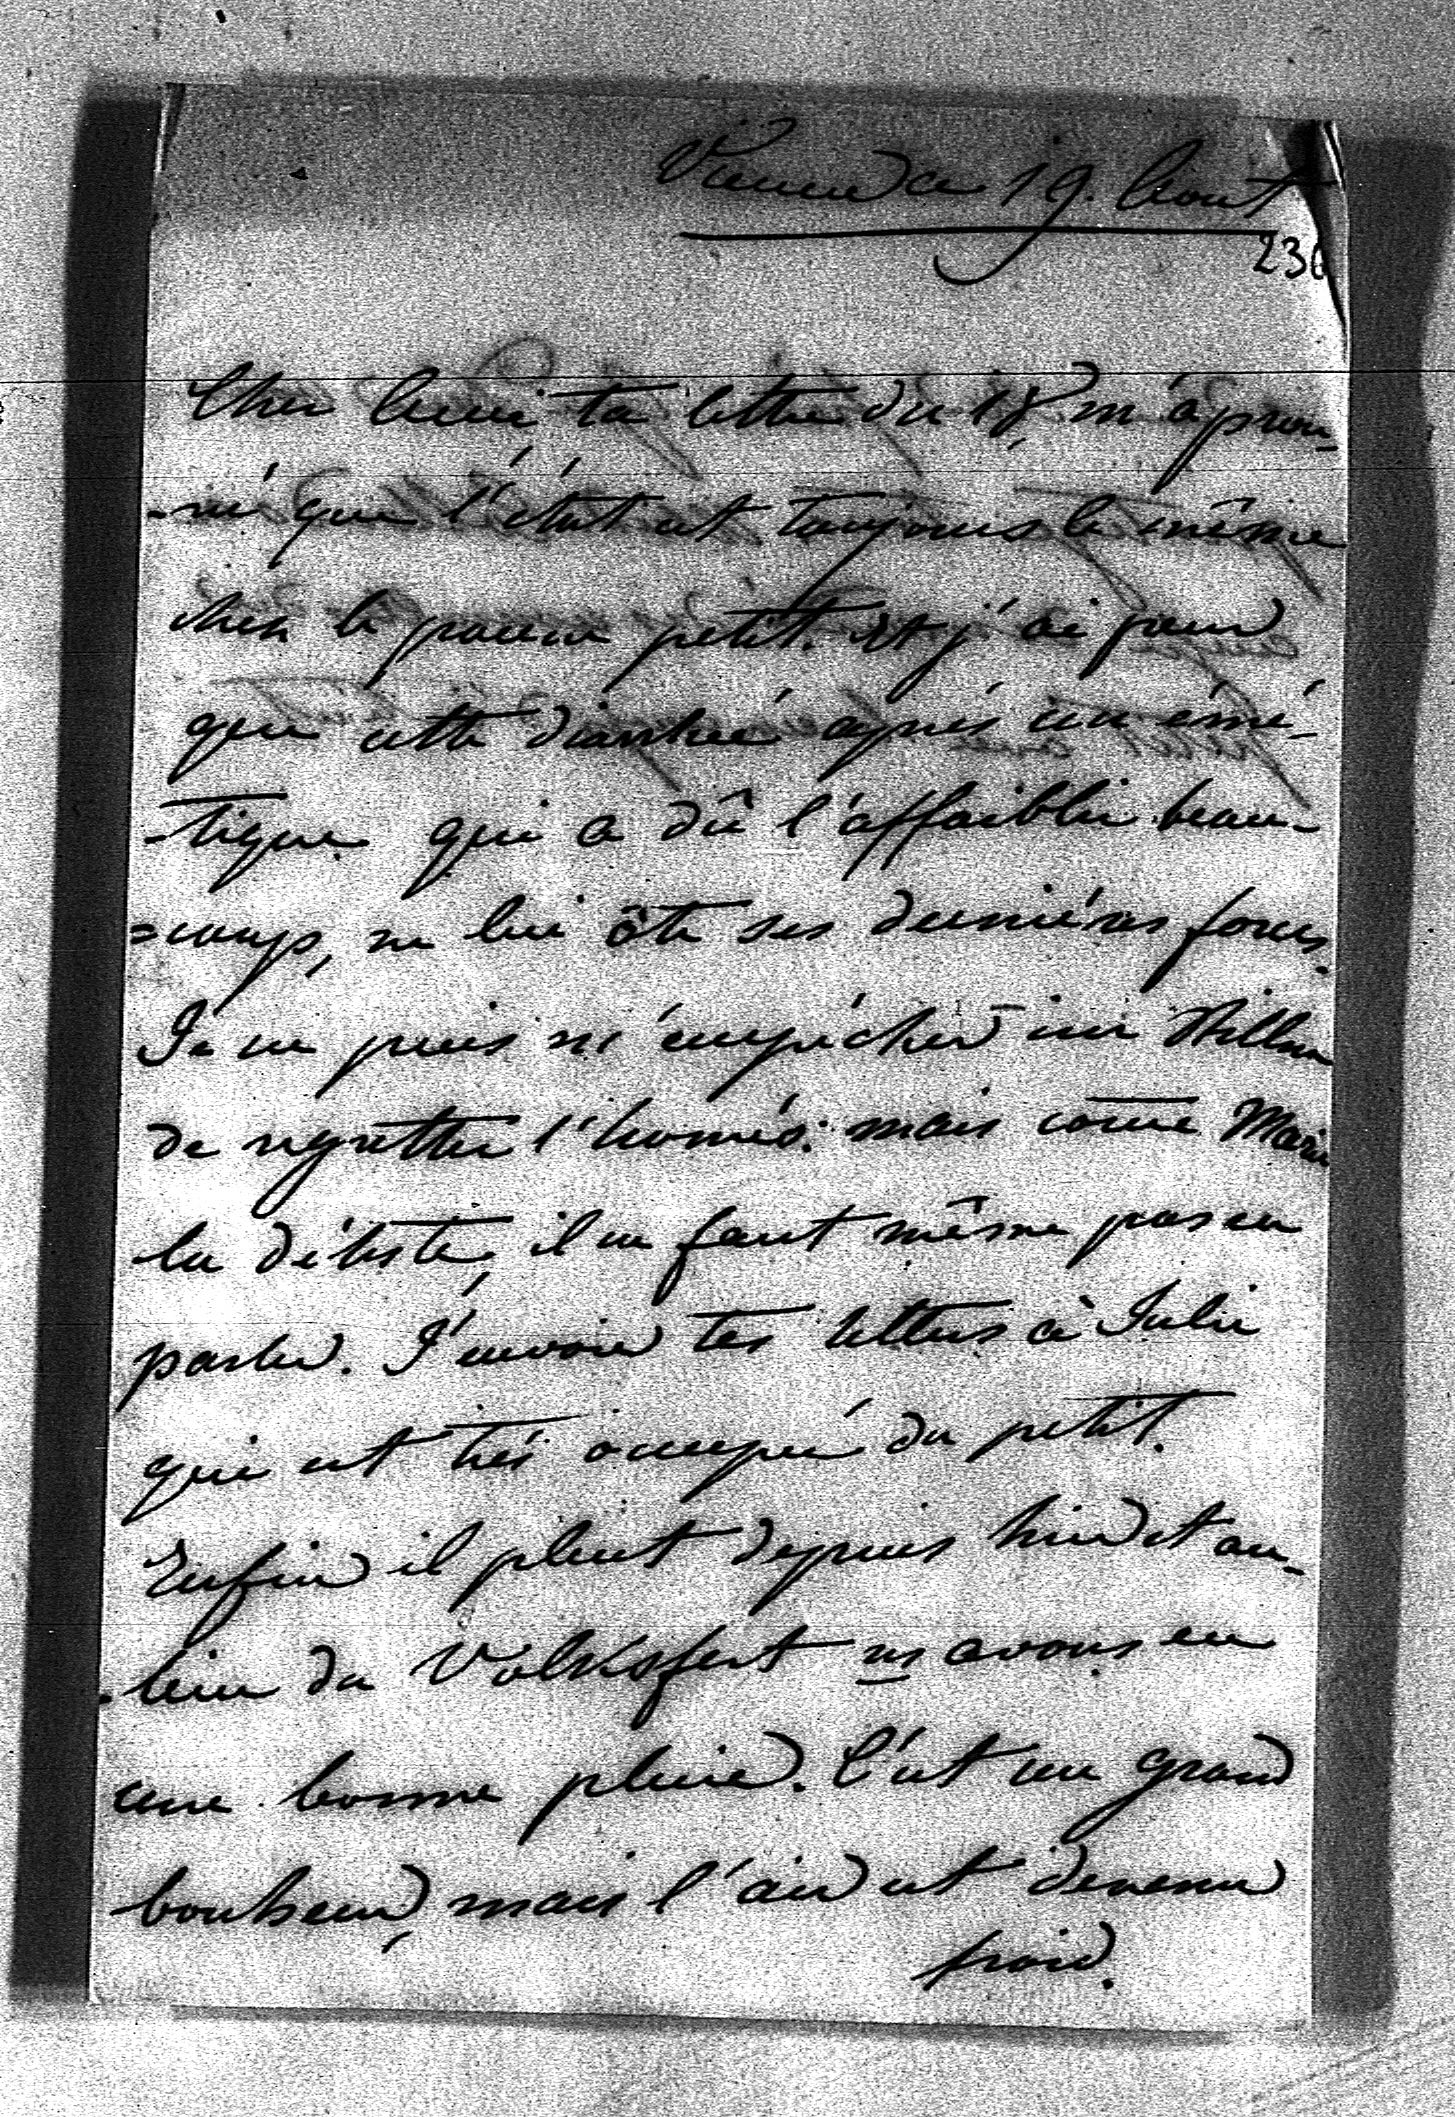 Vienne ce 19. Aout
236
Cher ami ta lettre du 18 m'a prou-
-vé que l'état est toujours le même
chez le pauvre petit. Et j'ai peur
que cette diarrhée après un émé-
-tique qui a dû l'affaiblir beau-
=coup, ne lui ôte ses dernières forces.
Je ne puis m'empêcher
de regretter l'homéo: mais come Marie
la déteste, il ne faut même pas en
parler. J'envoie tes lettres à Julie
qui est très occupée du petit.
Enfin il pleut depuis hier et au-
-lieu du Volksfest ns avons eu
une bonne pluie. C'est un grand
bonheur, mais l'air est devenu
froid.